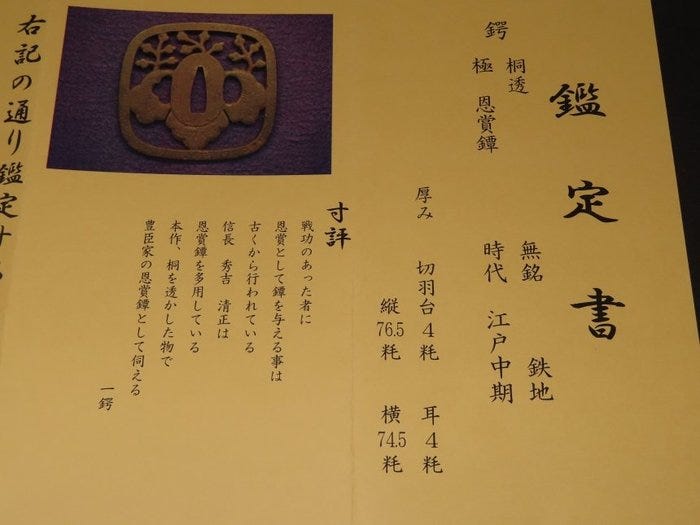 鑑定書
鍔 桐透 無銘 鉄地
極 恩賞鐔 時代 江戸中期
厚み 切羽台4粍 耳4粍
縦76.5粍 横74.5粍
寸評
戦功のあった者に
恩賞として鐔を与える事は
古くから行われている
信長 秀吉 清正は
恩賞鐔を多用している
本作、桐を透かした物で
豊臣家の恩賞鐔として伺える
一鍔
右記の通り鑑定する